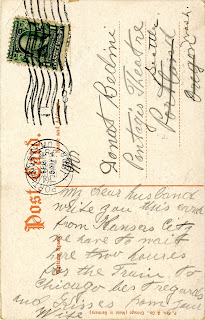 Post Card.
Donat Bedini
Pantages Theatre
Seattle
Portland
Wash.
Oregon
My dear husband
write you this card
from Kansas City
we have to wait
here two houres
for the Train to
Chicago best regards
and Kisses from your
Wife